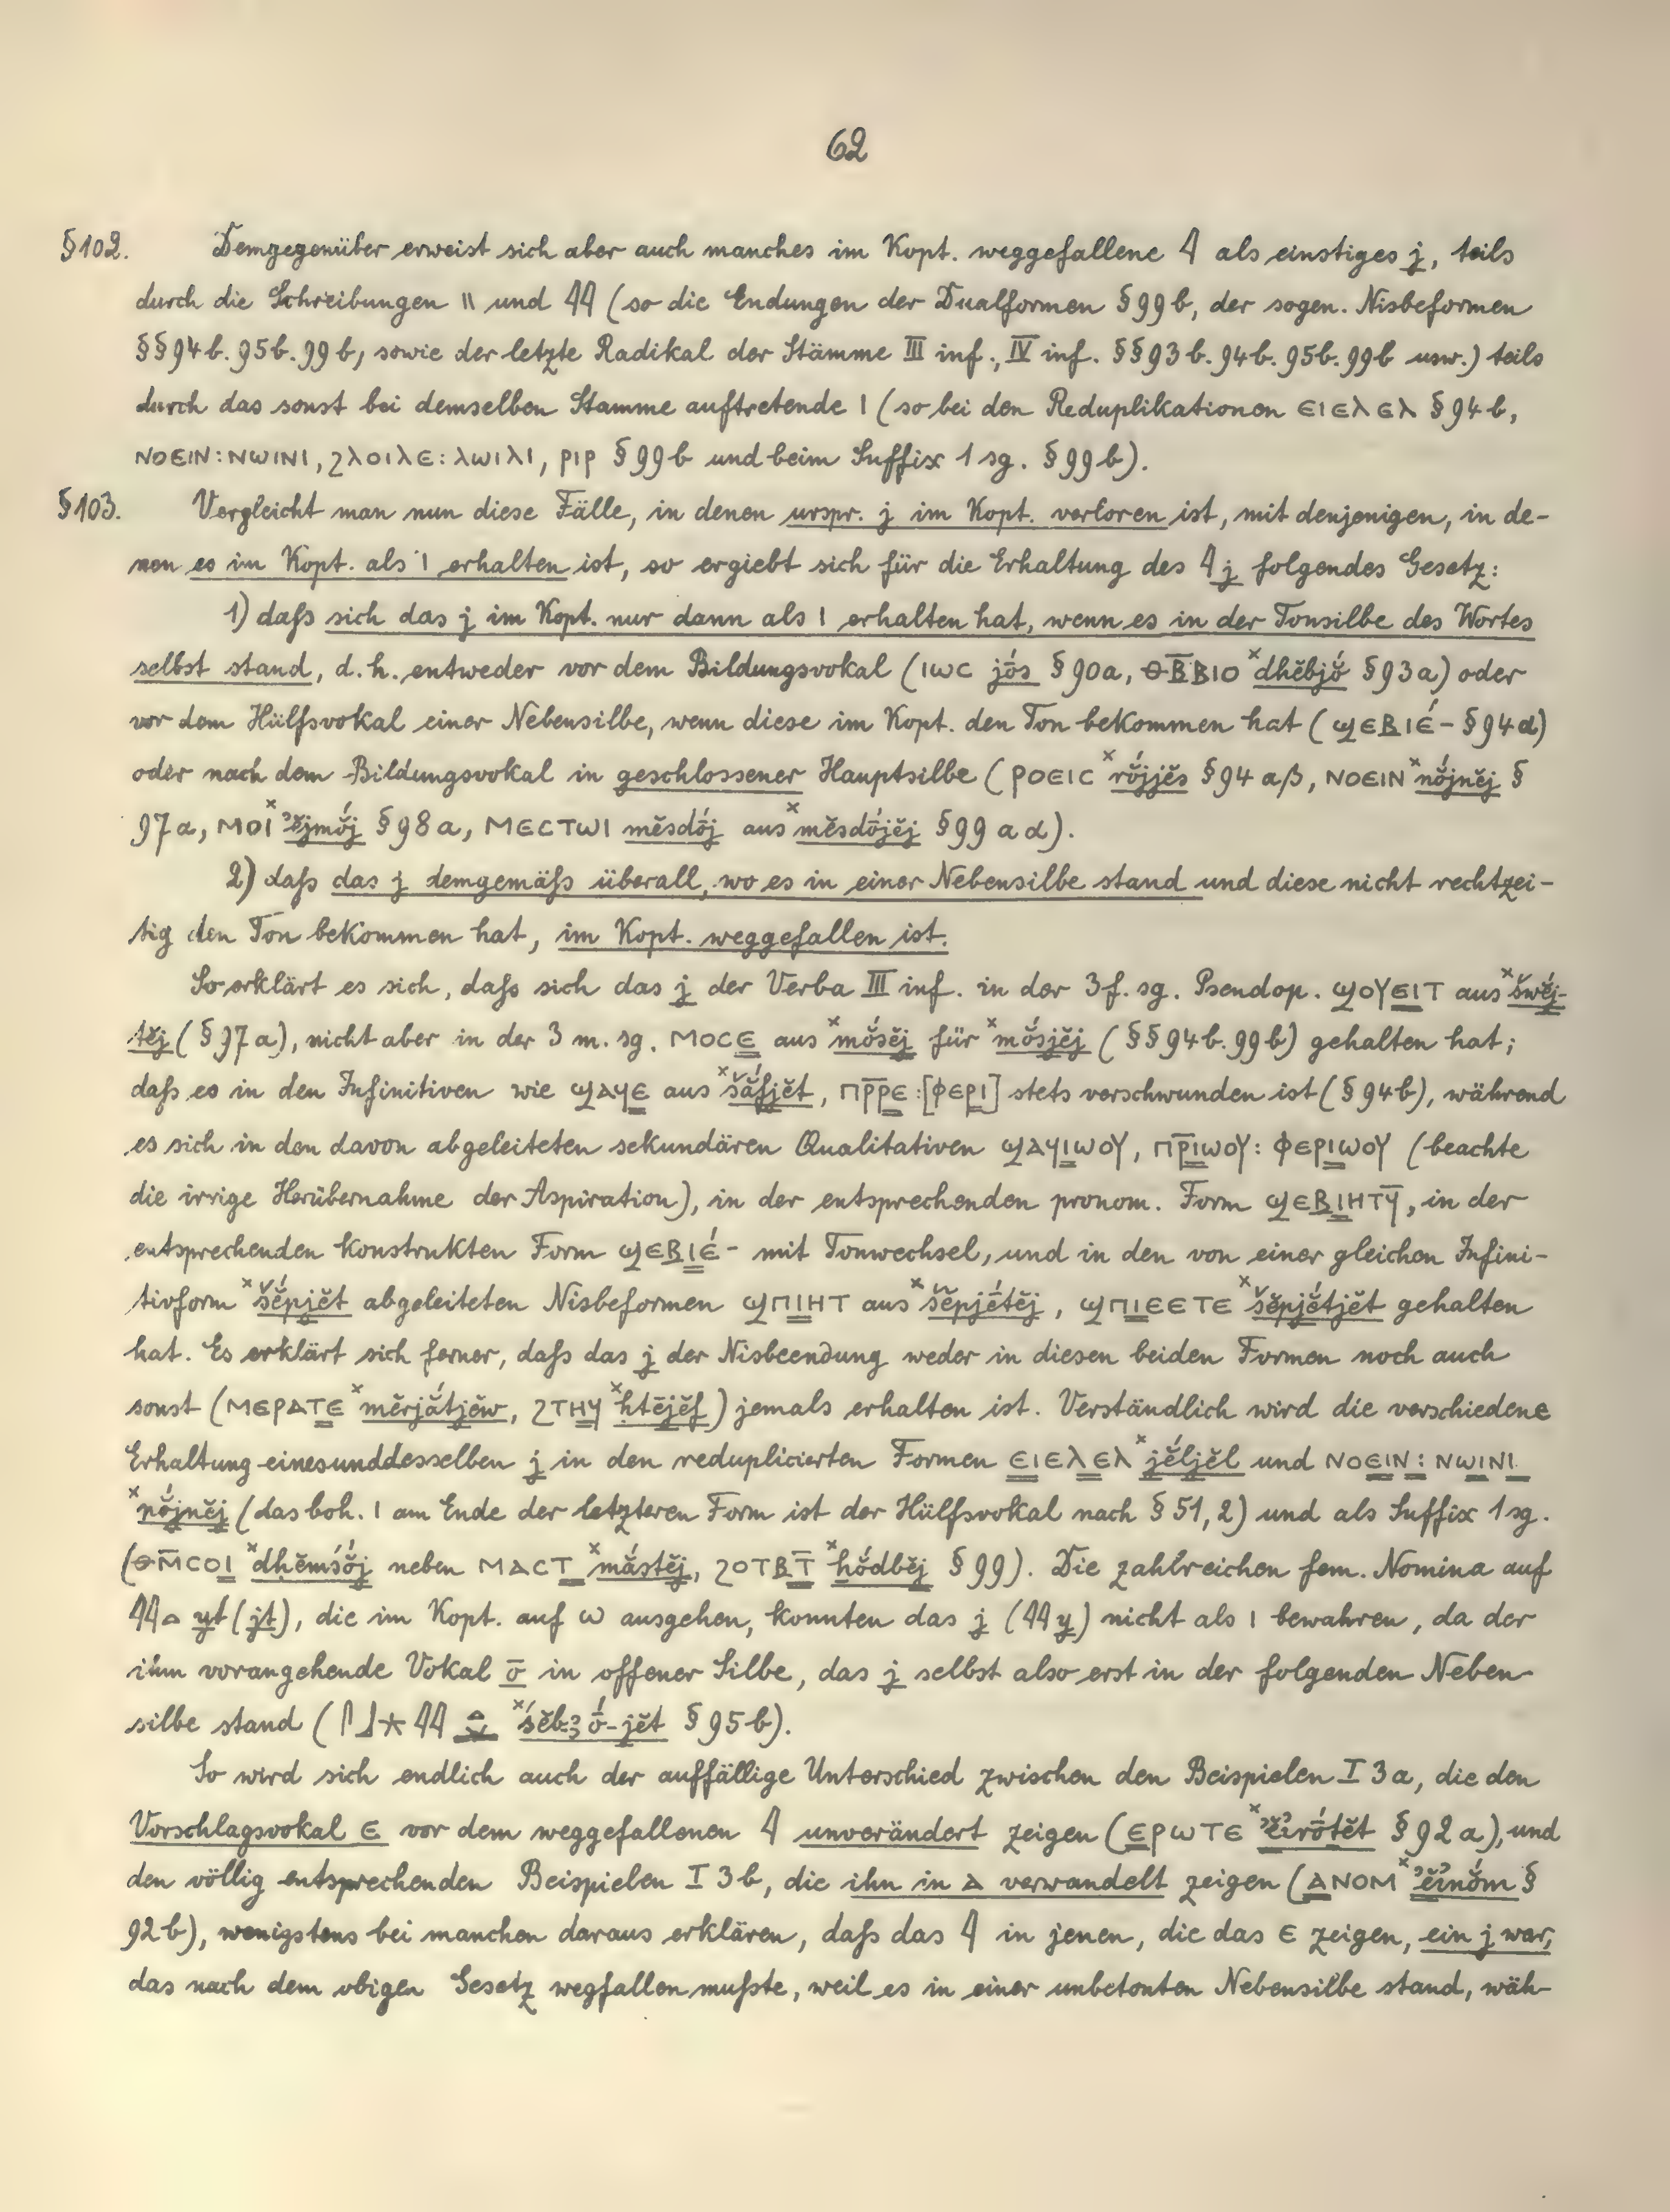 62
§102. Demgegenüber erweist sich aber auch manches im Kopt. weggefallene 𓇋 als einstiges j, teils
durch die Schreibungen \\ und 𓇋𓇋 (so die Endungen der Dualformen §99b, der sogen. Nisbeformen
§§94b. 95b. 99b, sowie der letzte Radikal der Stämme III inf., IV inf. §§93b. 94b. 95b. 99b usw.) teils
durch das sonst bei demselben Stamme auftretende ⲓ (so bei den Reduplikationen ⲉⲓⲉⲗⲉⲗ §94b,
ⲛⲟⲉⲓⲛ: ⲛⲱⲓⲛⲓ, ϩⲗⲟⲓⲗⲉ: ⲗⲱⲓⲗⲓ, ⲣⲓⲣ §99b und beim Suffix 1 sg. §99b).
§103. Vergleicht man nun diese Fälle, in denen urspr. j im Kopt. verloren ist, mit denjenigen, in de-
nen es im Kopt. als ⲓ erhalten ist, so ergiebt sich für die Erhaltung des 𓇋 j folgendes Gesetz:
1) daſs sich das j im Kopt. nur dann als ⲓ erhalten hat, wenn es in der Tonsilbe des Wortes
selbst stand, d.h. entweder vor dem Bildungsvokal (ⲓⲱⲥ jṓs §90a, ⲑⲃ̅ⲃⲓⲟ ˣdhĕbjŏ́ §93a) oder
vor dem Hülfsvokal einer Nebensilbe, wenn diese im Kopt. den Ton bekommen hat (ϣⲉⲃⲓⲉ́- §94α)
oder nach dem Bildungsvokal in geschlossener Hauptsilbe (ⲣⲟⲉⲓⲥ ˣrŏ́jjĕs §94 aβ, ⲛⲟⲉⲓⲛ ˣnŏ́jnĕj §
97a, ⲙⲟⲓ̈ ˣʾĕjmŏ́j §98a, ⲙⲉⲥⲧⲱⲓ mĕsdṓj aus ˣmĕsdṓjĕj §99 a α).
2) daſs das j demgemäſs überall, wo es in einer Nebensilbe stand und diese nicht rechtzei-
tig den Ton bekommen hat, im Kopt. weggefallen ist.
So erklärt es sich, daſs sich das j der Verba III inf. in der 3 f. sg. Pseudop. ϣⲟⲩⲉⲓⲧ aus ˣšwĕ́j-
tĕj (§97a), nicht aber in der 3 m. sg. ⲙⲟⲥⲉ aus ˣmŏ́sĕj für ˣmŏ́sjĕj (§§94b. 99b) gehalten hat;
daſs es in den Infinitiven wie ϣⲁϥⲉ aus ˣšắfjĕt, ⲡⲣ̅ⲣⲉ: [ⲫⲉⲣⲓ] stets verschwunden ist (§94b), während
es sich in den davon abgeleiteten sekundären Qualitativen ϣⲁϥⲓⲱⲟⲩ, ⲡⲣ̅ⲓⲱⲟⲩ: ⲫⲉⲣⲓⲱⲟⲩ (beachte
die irrige Herübernahme der Aspiration), in der entsprechenden pronom. Form ϣⲉⲃⲓⲏⲧϥ̅, in der
entsprechenden konstrukten Form ϣⲉⲃⲓⲉ́- mit Tonwechsel, und in den von einer gleichen Infini-
tivform ˣšĕ́pjĕt abgeleiteten Nisbeformen ϣⲡⲓⲏⲧ aus ˣšĕpjḗtĕj, ϣⲡⲓⲉⲉⲧⲉ ˣšĕpjĕ́tjĕt gehalten
hat. Es erklärt sich ferner, daſs das j der Nisbeendung weder in diesen beiden Formen noch auch
sonst (ⲙⲉⲣⲁⲧⲉ ˣmĕrjắtjĕw, ϩⲧⲏϥ ˣḥtḗjĕf) jemals erhalten ist. Verständlich wird die verschiedene
Erhaltung einesunddesselben j in den reduplicierten Formen ⲉⲓⲉⲗⲉⲗ ˣjĕ́ljĕl und ⲛⲟⲉⲓⲛ: ⲛⲱⲓⲛⲓ
ˣnŏ́jnĕj (das boh. ⲓ am Ende der letzteren Form ist der Hülfsvokal nach §51,2) und als Suffix 1 sg.
(ⲑⲙ̅ⲥⲟⲓ ˣdḥĕmśŏ́j neben ⲙⲁⲥⲧ ˣmắstĕj, ϩⲟⲧⲃⲧ̅ ˣḫŏ́dbĕj §99). Die zahlreichen fem. Nomina auf
𓇋𓇋𓏏 yt (jt), die im Kopt. auf ⲱ ausgehen, konnten das j (𓇋𓇋 y) nicht als ⲓ bewahren, da der
ihm vorangehende Vokal ō in offener Silbe, das j selbst also erst in der folgenden Neben-
silbe stand (𓋴𓃀𓇼𓇋𓇋 ˣśĕbꜣṓ-jĕt §95b).
So wird sich endlich auch der auffällige Unterschied zwischen den Beispielen I 3a, die den
Vorschlagsvokal ⲉ vor dem weggefallenen 𓇋 unverändert zeigen (ⲉⲣⲱⲧⲉ ˣʾĕirṓtĕt §92a), und
den völlig entsprechenden Beispielen I 3b, die ihn in ⲁ verwandelt zeigen (ⲁⲛⲟⲙ ˣʾĕinŏ́m §
92b), wenigstens bei manchen daraus erklären, daſs das 𓇋 in jenen, die das ⲉ zeigen, ein j war,
das nach dem obigen Gesetz wegfallen muſste, weil es in einer unbetonten Nebensilbe stand, wäh-